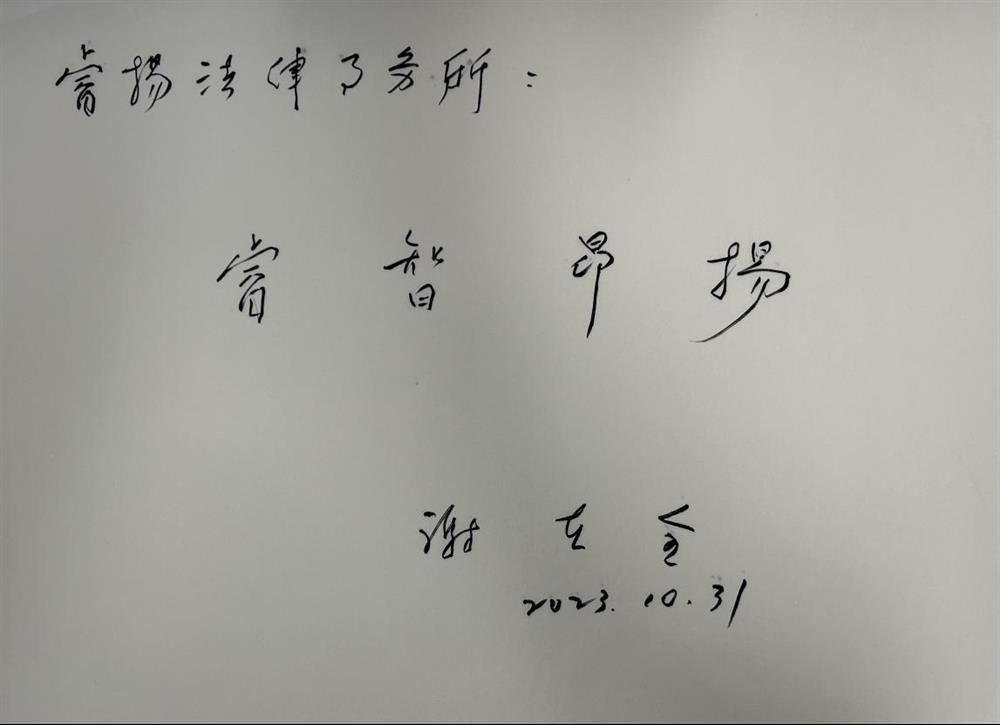 睿揚法律事务所：
睿智昂揚
谢在全
2023.10.31